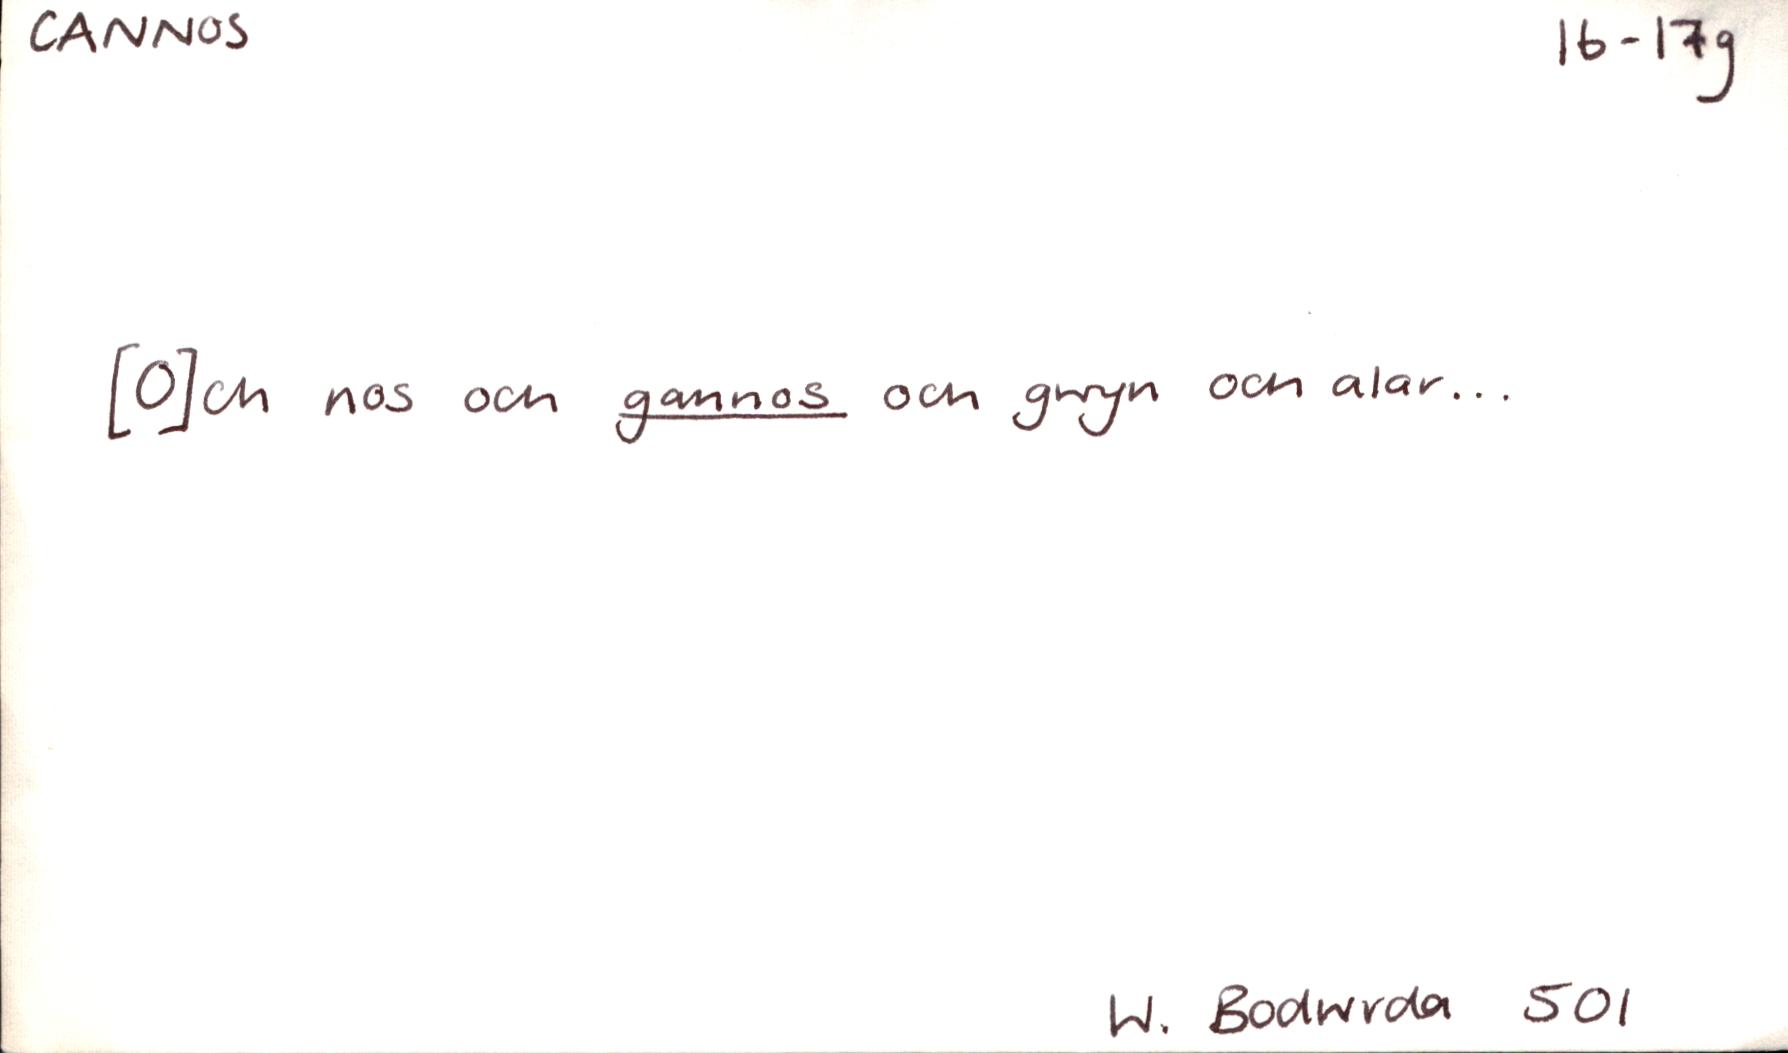 CANNOS 16-17g
[O]ch nos och gannos och gwyn och alar...
W. Bodwrda 501